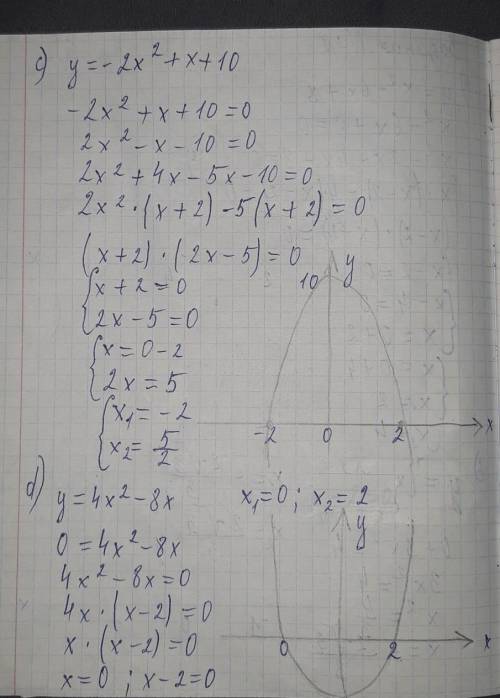 c) y = -2x² + x + 10
-2x² + x + 10 = 0
2x² - x - 10 = 0
2x² + 4x - 5x - 10 = 0
2x² · (x + 2) - 5(x + 2) = 0
(x + 2) · (2x - 5) = 0
{ x + 2 = 0
2x - 5 = 0
{ x = 0 - 2
2x = 5
{ x₁ = -2
x₂ = 5/2
y
10
-2 0 2 x
d) y = 4x² - 8x
0 = 4x² - 8x
4x² - 8x = 0
4x · (x - 2) = 0
x · (x - 2) = 0
x = 0 ; x - 2 = 0
x₁ = 0 ; x₂ = 2
y
0 2 x